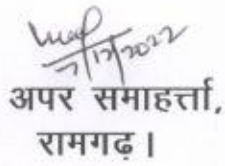 7/12/2022
अपर समाहर्त्ता,
रामगढ़।